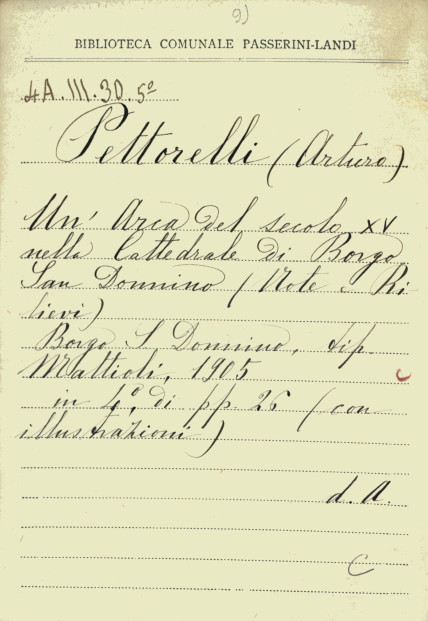 9)
BIBLIOTECA COMUNALE PASSERINI-LANDI
4A.III.30.5º
Pettorelli (Arturo)
Un' Arca del secolo XV
nella Cattedrale di Borgo
San Donnino (Note e Ri
lievi)
Borgo S. Donnino, tip.
Mattioli, 1905
in 4º, di pp. 26 (con
illustrazioni)
d. A.
C